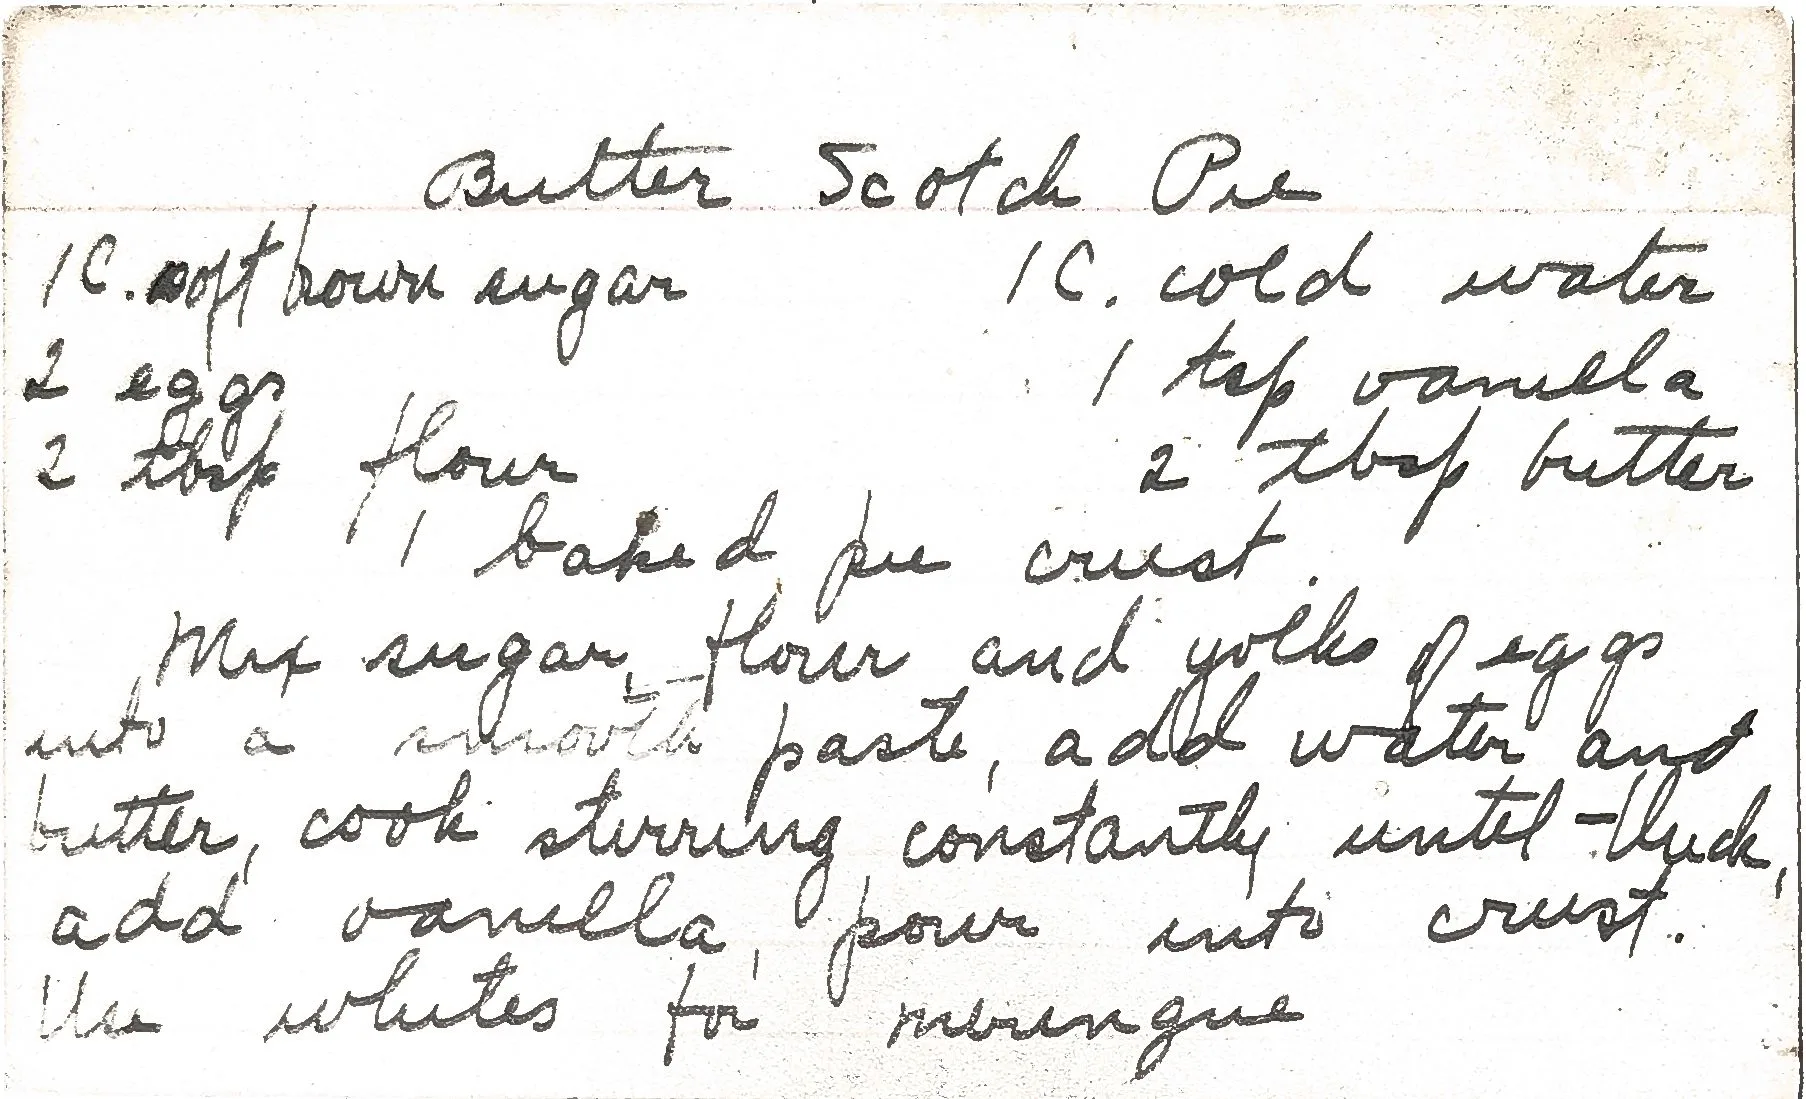 Butter Scotch Pie
1 C. soft brown sugar 1 C. cold water
2 eggs 1 tsp vanilla
2 tbsp flour 2 tbsp butter
1 baked pie crust.
Mix sugar, flour and yolks of eggs
into a smooth paste, add water and
butter, cook stirring constantly until thick,
add vanilla, pour into crust.
Use whites for meringue